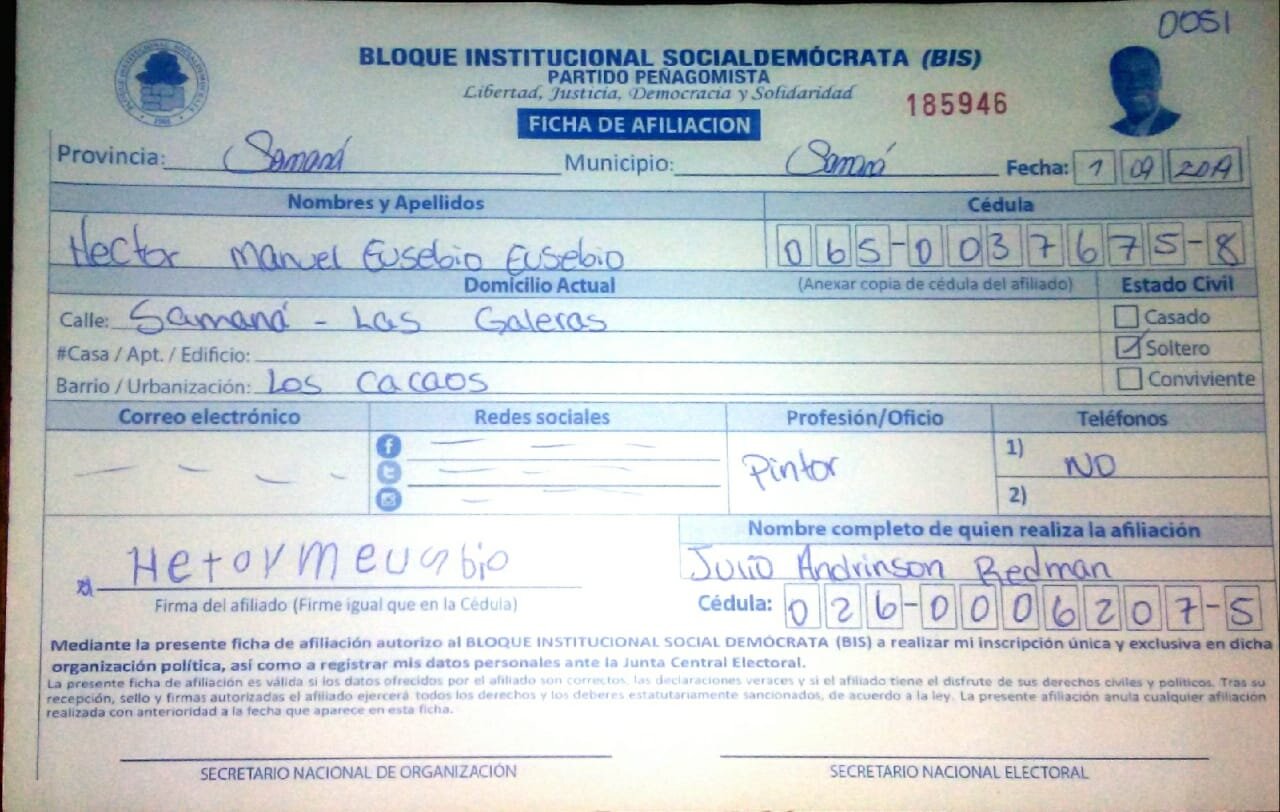 0051
BLOQUE INSTITUCIONAL SOCIALDEMÓCRATA (BIS)
PARTIDO PEÑAGOMISTA
Libertad, Justicia, Democracia y Solidaridad
185946
FICHA DE AFILIACION
Provincia: Samaná Municipio: Samaná Fecha: 1 09 2019
Nombres y Apellidos Cédula
Hector Manuel Eusebio Eusebio 065-0037675-8
Domicilio Actual (Anexar copia de cédula del afiliado) Estado Civil
Calle: Samaná - Las Galeras Casado
#Casa / Apt. / Edificio: Soltero
Barrio / Urbanización: Los Cacaos Conviviente
Correo electrónico Redes sociales Profesión/Oficio Teléfonos
Pintor 1) NO
2)
Nombre completo de quien realiza la afiliación
Hetor Meusbio Julio Andrinson Redman
Firma del afiliado (Firme igual que en la Cédula) Cédula: 026-0006207-5
Mediante la presente ficha de afiliación autorizo al BLOQUE INSTITUCIONAL SOCIAL DEMÓCRATA (BIS) a realizar mi inscripción única y exclusiva en dicha
organización política, así como a registrar mis datos personales ante la Junta Central Electoral.
La presente ficha de afiliación es válida si los datos ofrecidos por el afiliado son correctos, las declaraciones veraces y si el afiliado tiene el disfrute de sus derechos civiles y políticos. Tras su
recepción, sello y firmas autorizadas el afiliado ejercerá todos los derechos y los deberes estatutariamente sancionados, de acuerdo a la ley. La presente afiliación anula cualquier afiliación
realizada con anterioridad a la fecha que aparece en esta ficha.
SECRETARIO NACIONAL DE ORGANIZACIÓN SECRETARIO NACIONAL ELECTORAL